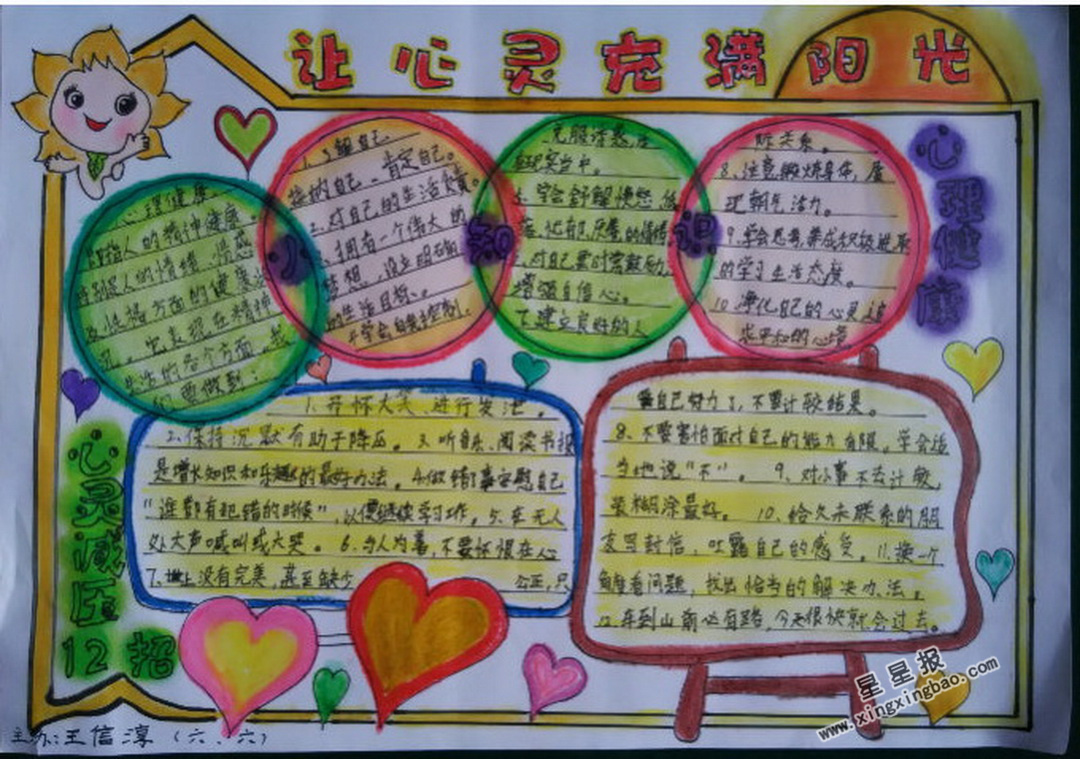 让心灵充满阳光
心理健康
小知识
心理健康，
即指人的精神健康。
特别是人的情绪，情感
及性格方面的健康状
况。它表现在精神
生活的各个方面，我
们要做到：
1、了解自己
接纳自己，肯定自己。
2、对自己的生活负责。
3、拥有一个伟大的
梦想，设立明确
的生活目标。
4、学会自我控制，
克服诱惑，活
在现实当中。
5、学会舒解愤怒，低
落，沉郁，厌屋的情绪
6、对自己要时常鼓励，
增强自信心。
7、建立良好的人
际关系。
8、注意锻炼身体，展
现朝气活力。
9、学会思考，养成积极进取
的学习生活态度。
10、净化自己的心灵，追
求平和的心境
心灵减压
12招
1、开怀大笑，进行发泄。
2、保持沉默有助于降压。3、听音乐、阅读书报
是增长知识和乐趣的最好方法。4、做错了事安慰自己
"谁都有犯错的时候"，以便继续学习工作。5、在无人
处大声喊叫或大哭。6、与人为善，不要怀恨在心
7、世上没有完美，甚至缺少公正，只
要自己努力了，不要计较结果。
8、不要害怕面对自己的能力有限，学会适
当地说"不"。9、对小事不去计较，
装糊涂最好。10、给久未联系的朋
友写封信，吐露自己的感受。11、换一个
角度看问题，找出恰当的解决办法。
12、车到山前必有路，今天很快就会过去。
主办：王信淳（六、六）
星星报
www.xingxingbao.com